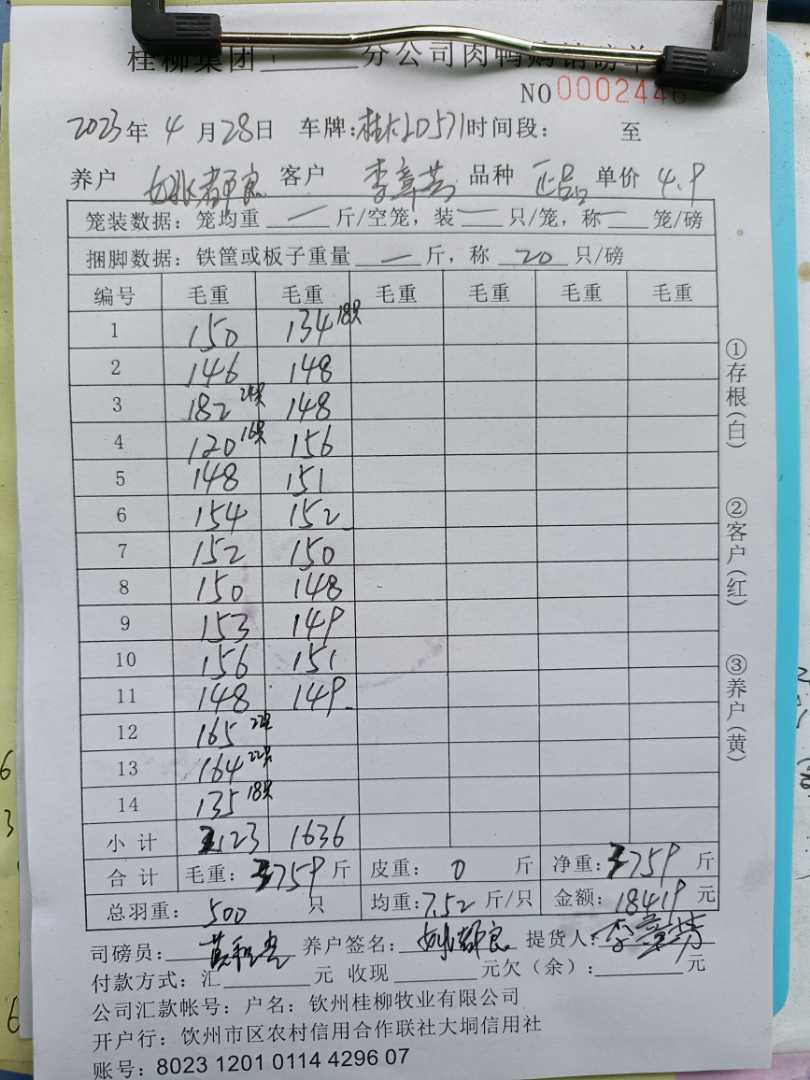 桂柳集团______分公司肉鸭购销磅单
NO 0002446
2023年 4 月 28日 车牌: 时间段: 至
养户 客户 李章芳 品种 正品 单价 4.9
笼装数据: 笼均重 — 斤/空笼, 装 — 只/笼, 称 — 笼/磅
捆脚数据: 铁筐或板子重量 — 斤, 称 20 只/磅
编号 毛重 毛重 毛重 毛重 毛重 毛重
1 150 134 18只
2 146 148
3 182 24只 148
4 120 16只 156
5 148 151
6 154 152
7 152 150
8 150 148
9 153 149
10 156 151
11 148 149
12 165
13 164 22只
14 135 18只
小计 2123 1636
合计 毛重: 3759 斤 皮重: 0 斤 净重: 3759 斤
总羽重: 500 只 均重: 7.52 斤/只 金额: 18419 元
司磅员: 养户签名: 提货人: 李章芳
付款方式: 汇______元 收现______元欠(余):______元
公司汇款帐号: 户名: 钦州桂柳牧业有限公司
开户行: 钦州市区农村信用合作联社大垌信用社
账号: 8023 1201 0114 4296 07
①存根(白)
②客户(红)
③养户(黄)